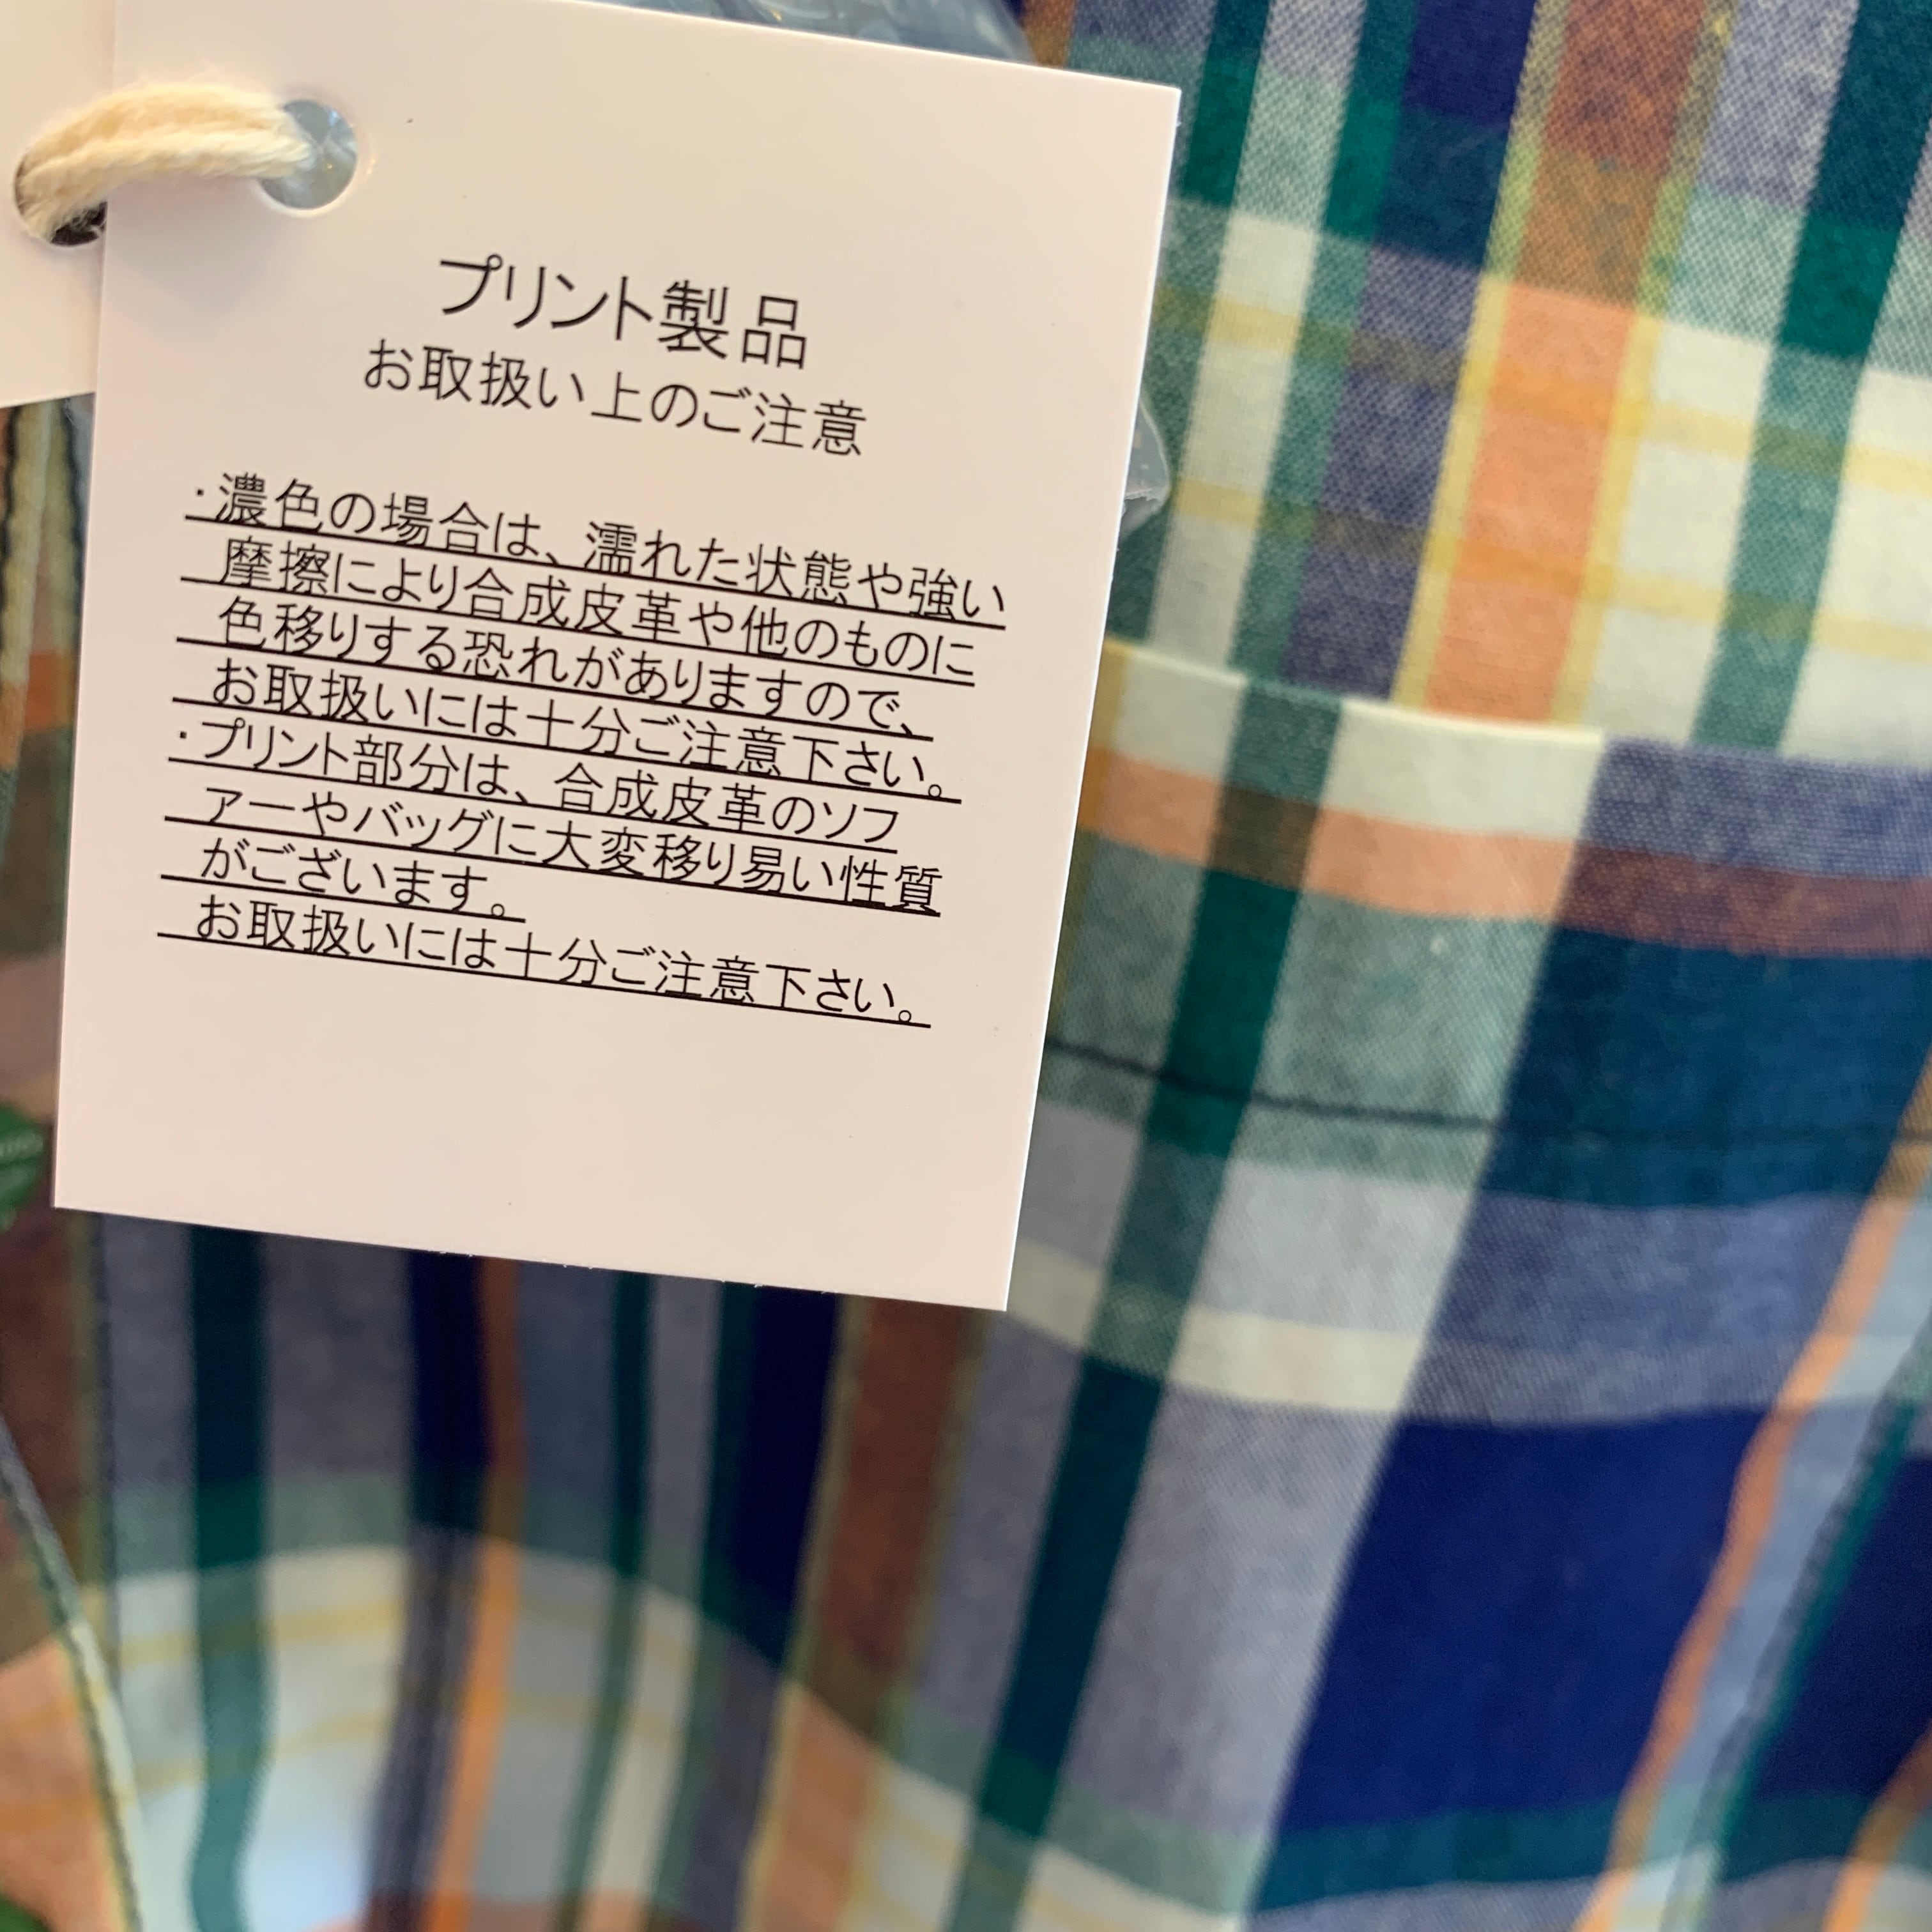 プリント製品
お取扱い上のご注意
・濃色の場合は、濡れた状態や強い
摩擦により合成皮革や他のものに
色移りする恐れがありますので、
お取扱いには十分ご注意下さい。
・プリント部分は、合成皮革のソフ
アーやバッグに大変移り易い性質
がございます。
お取扱いには十分ご注意下さい。